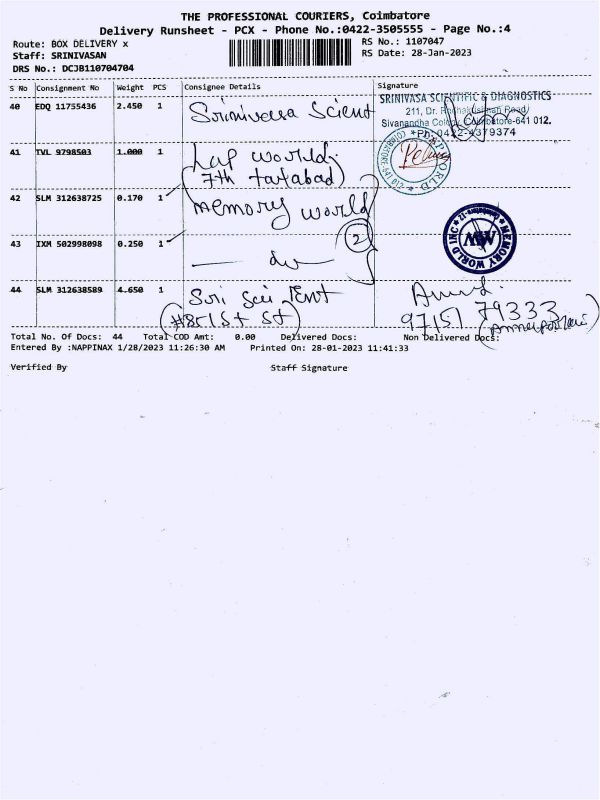 THE PROFESSIONAL COURIERS, Coimbatore
Delivery Runsheet - PCX - Phone No.:0422-3505555 - Page No.:4
Route: BOX DELIVERY x
RS No.: 1107047
Staff: SRINIVASAN
RS Date: 28-Jan-2023
DRS No.: DCJB110704704
S No Consignment No Weight PCS Consignee Details Signature
40 EDQ 11755436 2.450 1 Srinivasa Scient
SRINIVASA SCIENTIFIC & DIAGNOSTICS
211, Dr. Road/
Sivanandha Colony, Coimbatore-641 012.
*Ph: 0422-4379374
41 TVL 9798503 1.000 1 Lap world
(7th tatabad)
42 SLM 312638725 0.170 1 memory world
2
MEMORY WORLD INC
MW
43 IXM 502998098 0.250 1 — do —
44 SLM 312638589 4.650 1 Sri Sci Ient
(#85 1st St)
97151 79333
Total No. Of Docs: 44 Total COD Amt: 0.00 Delivered Docs: Non Delivered Docs:
Entered By :NAPPINAX 1/28/2023 11:26:30 AM Printed On: 28-01-2023 11:41:33
Verified By Staff Signature